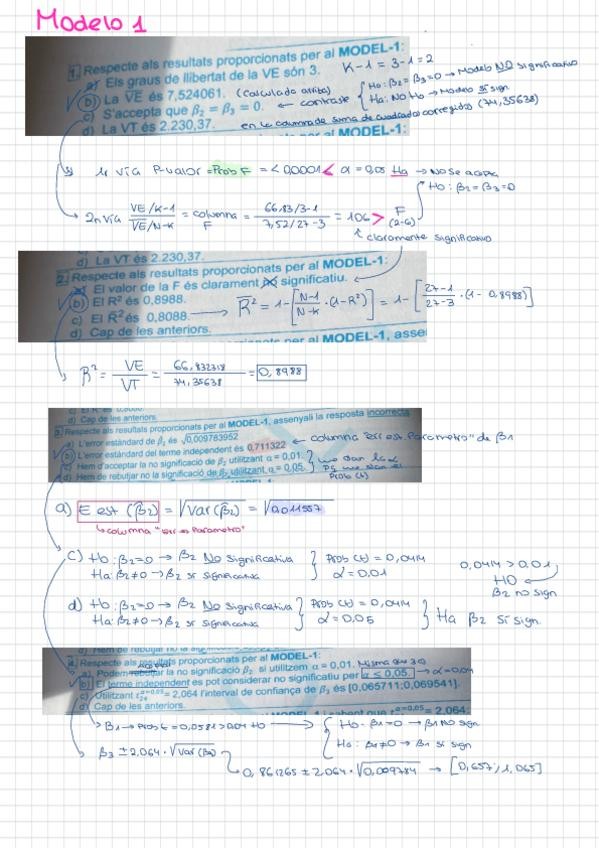 Modelo 1
1. Respecte als resultats proporcionats per al MODEL-1:
K-1 = 3-1 = 2
a) Els graus de llibertat de la VE són 3.
b) La VE és 7,524061. (Calculado arriba)
c) S'accepta que β2 = β3 = 0. ← contraste
Ho: β2 = β3 = 0 → Modelo NO significativo
Ha: No Ho → Modelo sí sign
d) La VT és 2.230,37. en la columna de suma de cuadrados corregidos (74,35638)
al MODEL-1:
1r vía P-valor = Prob F = < 0,0001 < α = 0,05 Ha → No se acepta
Ho: β2 = β3 = 0
2n vía VE/K-1 / VE/N-K = columna F = 66,83/3-1 / 7,52/27-3 = 106 > F (2-6)
claramente significativo
d) La VT és 2.230,37.
2. Respecte als resultats proporcionats per al MODEL-1:
a) El valor de la F és clarament no significatiu.
b) El R² és 0,8988.
c) El R̄² és 0,8088. → R̄² = 1 - [N-1/N-K · (1-R²)] = 1 - [27-1/27-3 · (1 - 0,8988)]
d) Cap de les anteriors.
per al MODEL-1, asse
R² = VE/VT = 66,832318/74,35638 = 0,8988
d) Cap de les anteriors.
3. Respecte als resultats proporcionats per al MODEL-1, assenyali la resposta incorrecta
a) L'error estàndard de β2 és √0,009783952
b) L'error estàndard del terme independent és 0,711322 ← columna "err est. Parametro" de β1
c) Hem d'acceptar la no significació de β2 utilitzant α = 0,01.
d) Hem de rebutjar la no significació de β2 utilitzant α = 0,05.
Prob (t)
a) E est (β2) = √Var (β2) = √0,011557
↳ columna "err es Parametro"
c) Ho: β2 = 0 → β2 No significativa
Ha: β2 ≠ 0 → β2 sí significativa
Prob (t) = 0,0414
α = 0,01
0,0414 > 0,01
H0
β2 no sign
d) Ho: β2 = 0 → β2 No significativa
Ha: β2 ≠ 0 → β2 sí significativa
Prob (t) = 0,0414
α = 0,05
Ha β2 sí sign.
4. Respecte als resultats proporcionats per al MODEL-1:
a) Podem rebutjar la no significació β2 si utilitzem α = 0,01. Misma que 3c)
b) El terme independent es pot considerar no significatiu per α ≤ 0,05. → α = 0,04
c) Utilitzant t = 2,064 l'interval de confiança de β3 és [0,065711;0,069541].
d) Cap de les anteriors.
= 2,064.
β1 → Prob t = 0,0581 > 0,04 H0 →
Ho: β1 = 0 → β1 No sign
Ha: β1 ≠ 0 → β1 sí sign
β3 ± 2,064 · √Var (β3)
0,861265 ± 2,064 · √0,009784 → [0,657; 1,065]